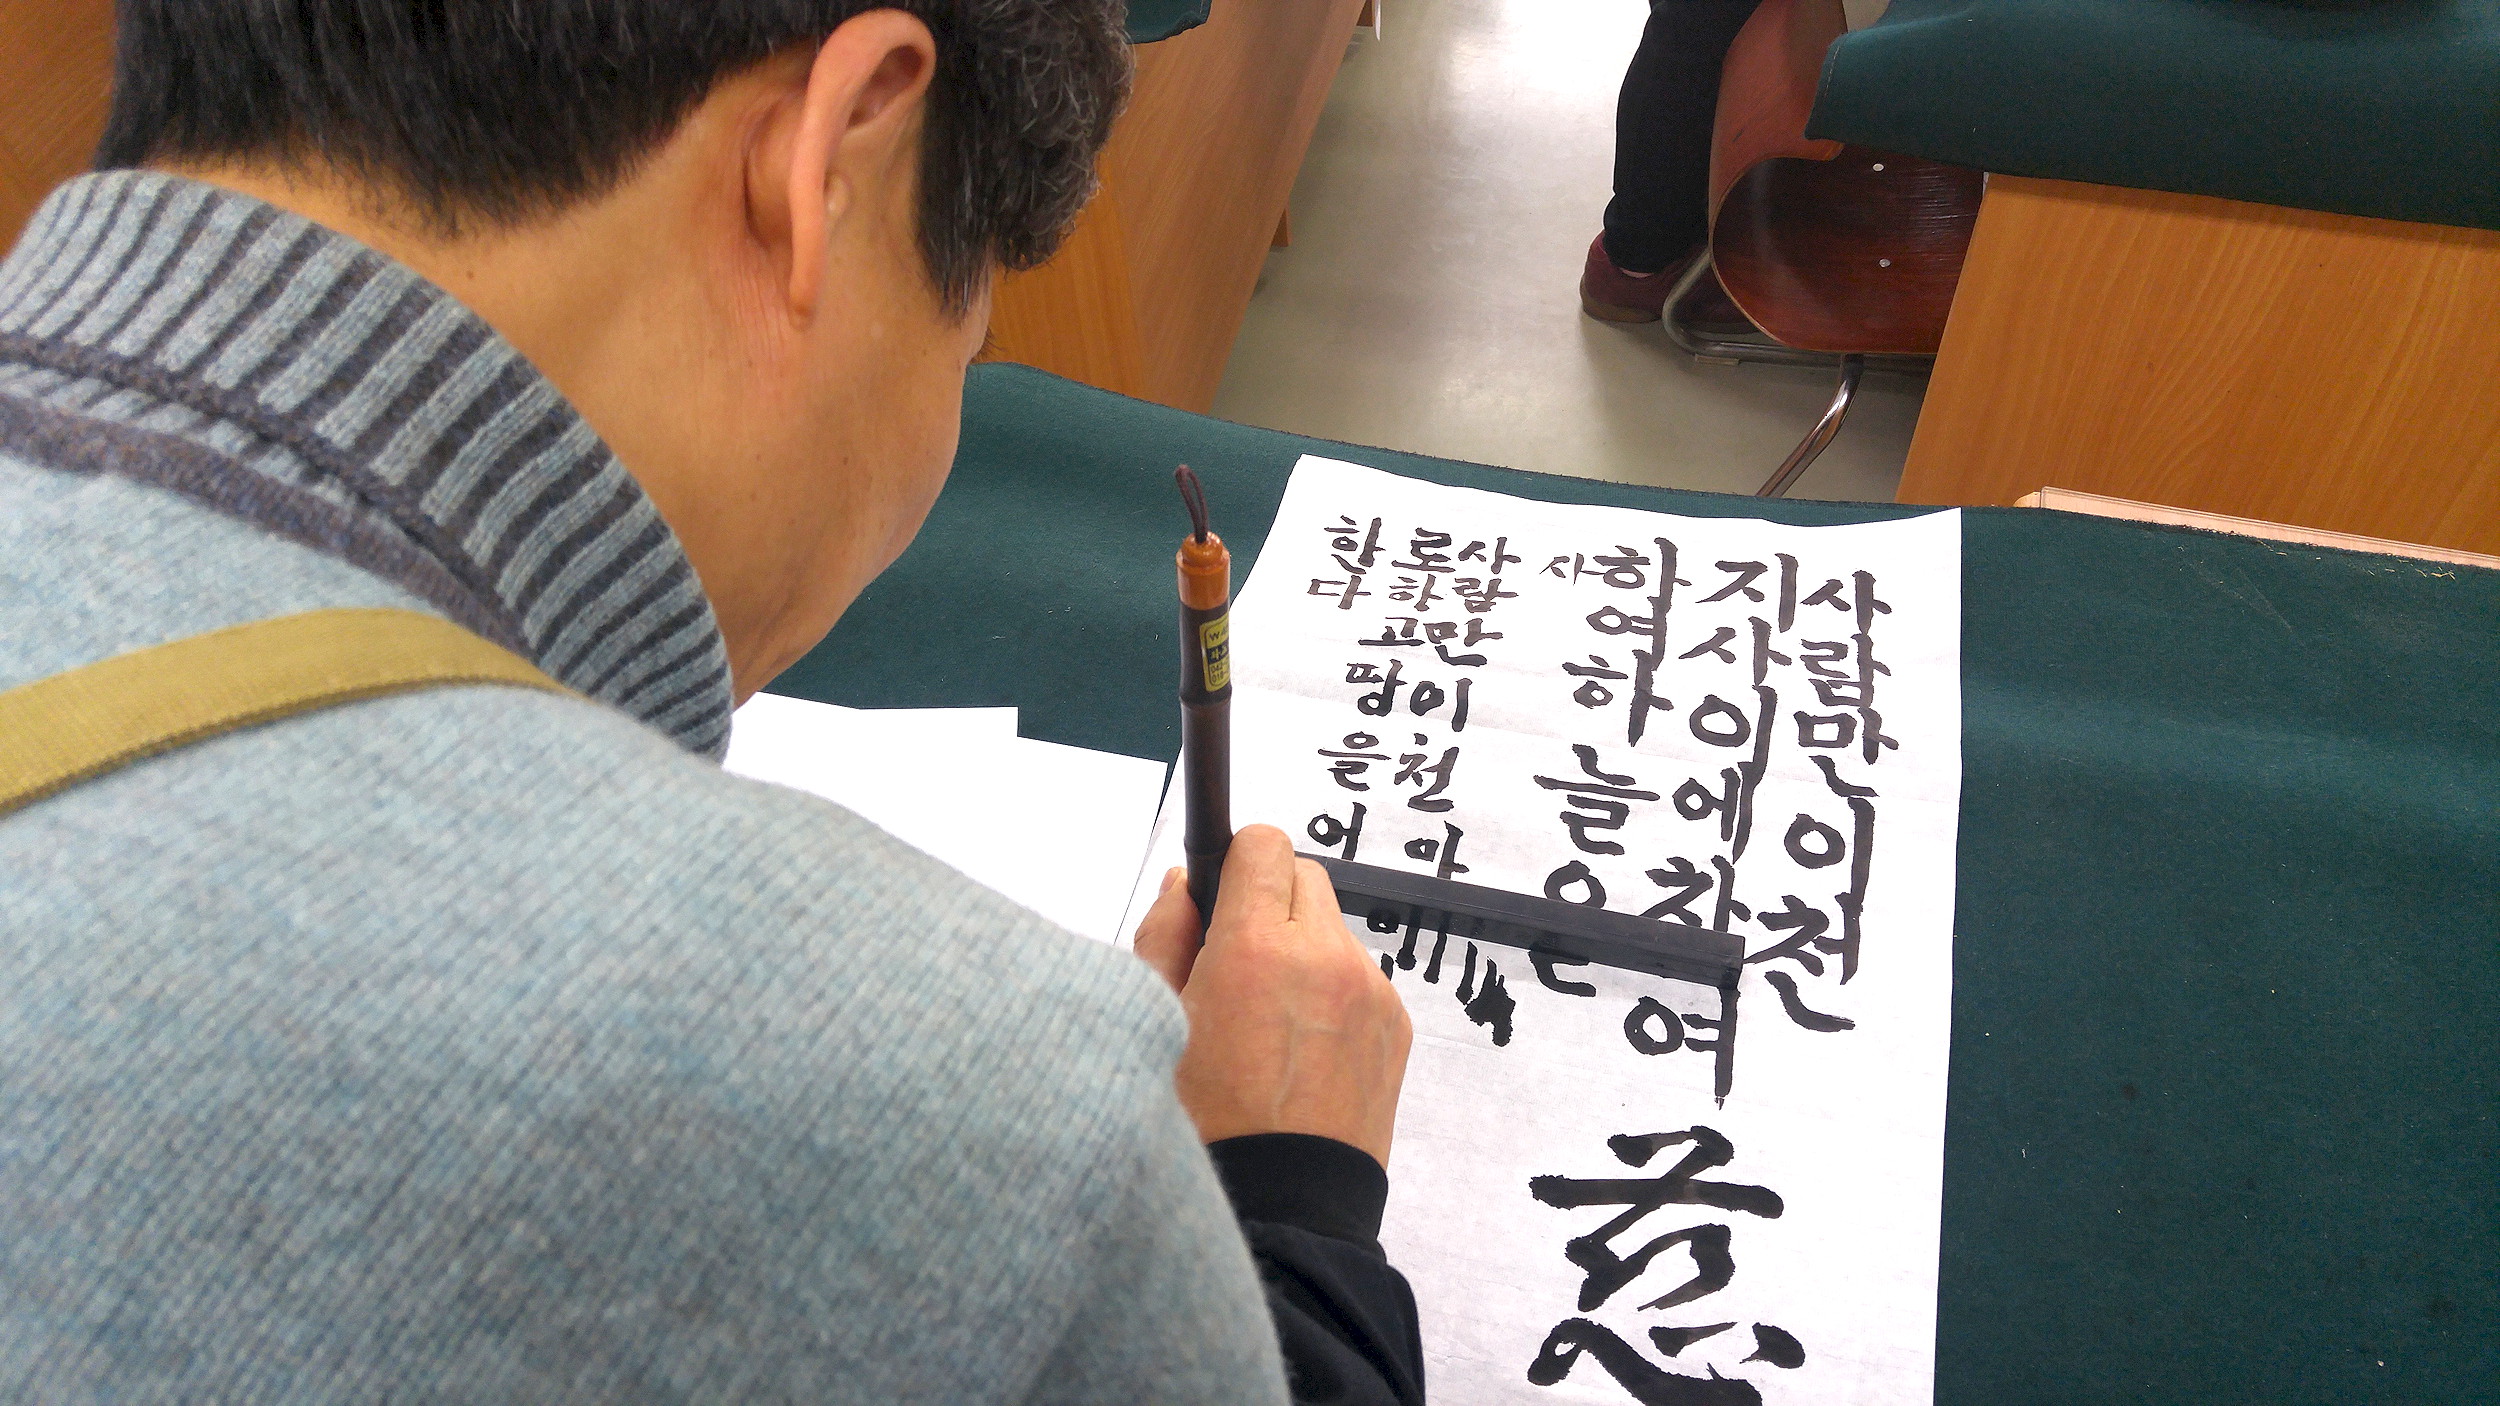 사람만이천
지사이에참여
하여하늘은
사
사람만이천아
로하고땅을어
한다
慈